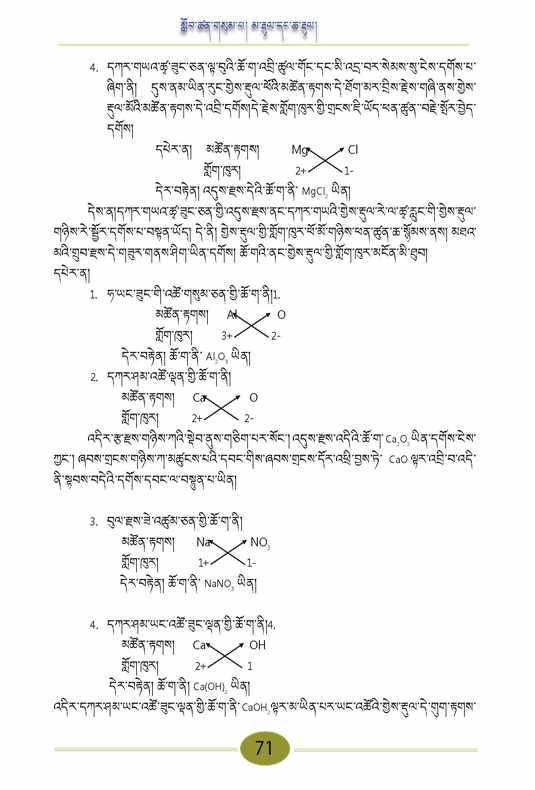 སློབ་ཚན་གསུམ་པ། མ་རྡུལ་དང་ཆ་རྡུལ།
4. དཀར་གཡའ་ཚྭ་ཟུང་ཅན་ལྟ་བུའི་ཚོ་ག་འབྲི་ཚུལ་གོང་དང་མི་འདྲ་བར་སེམས་སུ་ངེས་དགོས་པ་
ཞིག་ནི། དུས་ནམ་ཡིན་རུང་གྱེས་རྡུལ་ཕོའི་མཚོན་རྟགས་དེ་ཐོག་མར་བྲིས་རྗེས་གཞི་ནས་གྱེས་
རྡུལ་མོའི་མཚོན་རྟགས་དེ་འབྲི་དགོས།དེ་རྗེས་གློག་ཁུར་གྱི་གྲངས་ཇི་ཡོད་ཕན་ཚུན་བརྗེ་སྤོར་བྱེད་
དགོས།
དཔེར་ན། མཚོན་རྟགས། Mg Cl
གློག་ཁུར། 2+ 1-
དེར་བརྟེན། འདུས་རྫས་དེའི་ཚོ་ག་ནི་ MgCl₂ ཡིན།
དེས་ན།དཀར་གཡའ་ཚྭ་ཟུང་ཅན་གྱི་འདུས་རྫས་ནང་དཀར་གཡའི་གྱེས་རྡུལ་རེ་ལ་ཚྭ་རླུང་གི་གྱེས་རྡུལ་
གཉིས་རེ་སྦྱོར་དགོས་པ་བསྟན་ཡོད། དེ་ནི། གྱེས་རྡུལ་གྱི་གློག་ཁུར་ཕོ་མོ་གཉིས་ཕན་ཚུན་ཆ་སྙོམས་ནས། མཐའ་
མའི་གྲུབ་རྫས་དེ་གཟུར་གནས་ཤིག་ཡིན་དགོས། ཚོ་གའི་ནང་གྱེས་རྡུལ་གྱི་གློག་ཁུར་མངོན་མི་ཐུབ།
དཔེར་ན།
1. ཧ་ཡང་ཟུང་གི་འཚོ་གསུམ་ཅན་གྱི་ཚོ་ག་ནི།1.
མཚོན་རྟགས། Al O
གློག་ཁུར། 3+ 2-
དེར་བརྟེན། ཚོ་ག་ནི་ Al₂O₃ ཡིན།
2. དཀར་ཤམ་འཚོ་ལྡན་གྱི་ཚོ་ག་ནི།
མཚོན་རྟགས། Ca O
གློག་ཁུར། 2+ 2-
འདིར་རྩ་རྫས་གཉིས་ཀའི་སྡེབ་ནུས་གཅིག་པར་སོང་། འདུས་རྫས་འདིའི་ཚོ་ག་ Ca₂O₂ ཡིན་དགོས་ངེས་
ཀྱང་། ཞབས་གྲངས་གཉིས་ཀ་མཚུངས་པའི་དབང་གིས་ཞབས་གྲངས་དོར་འཕྲི་བྱས་ཏེ་ CaO ལྟར་འབྲི་བ་འདི་
ནི་སྟབས་བདེའི་དགོས་དབང་ལ་བསྟུན་པ་ཡིན།
3. བུལ་རྫས་ཟེ་འཚུམ་ཅན་གྱི་ཚོ་ག་ནི།
མཚོན་རྟགས། Na NO₃
གློག་ཁུར། 1+ 1-
དེར་བརྟེན། ཚོ་ག་ནི་ NaNO₃ ཡིན།
4. དཀར་ཤམ་ཡང་འཚོ་ཟུང་ལྡན་གྱི་ཚོ་ག་ནི།4.
མཚོན་རྟགས། Ca OH
གློག་ཁུར། 2+ 1
དེར་བརྟེན། ཚོ་ག་ནི། Ca(OH)₂ ཡིན།
འདིར་དཀར་ཤམ་ཡང་འཚོ་ཟུང་ལྡན་གྱི་ཚོ་ག་ནི་ CaOH₂ ལྟར་མ་ཡིན་པར་ཡང་འཚོའི་གྱེས་རྡུལ་དེ་གུག་རྟགས་
71